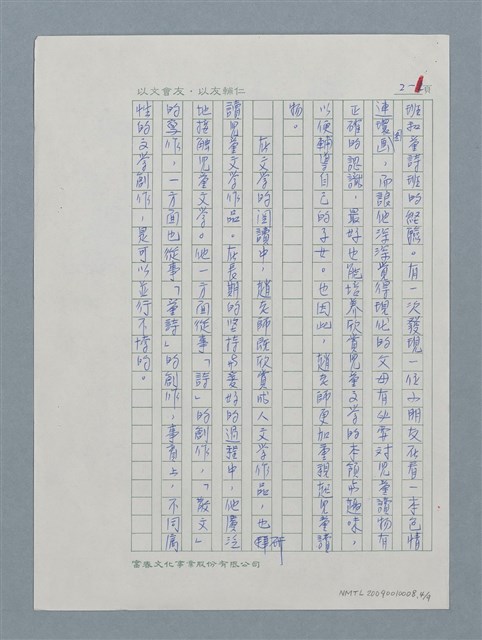 以文會友・以友輔仁
2-1頁
班和童詩班的經驗。有一次發現一位小朋友在看一本色情
連環圖，而讓他深深覺得現代的父母有必要對兒童讀物有
正確的認識，最好也能培養欣賞兒童文學的本領與趣味，
以便輔導自己的子女。也因此，趙老師更加重視起兒童讀
物。
在文學的閱讀中，趙老師既欣賞成人文學作品，也研
讀兒童文學作品。在長期的堅持與愛好的過程中，他廣泛
地接觸兒童文學。他一方面從事「詩」的創作，「散文」
的寫作，一方面也從事「童詩」的創作，事實上，不同屬
性的文學創作，是可以並行不悖的。
富春文化事業股份有限公司
NMTL20090010008,4/9